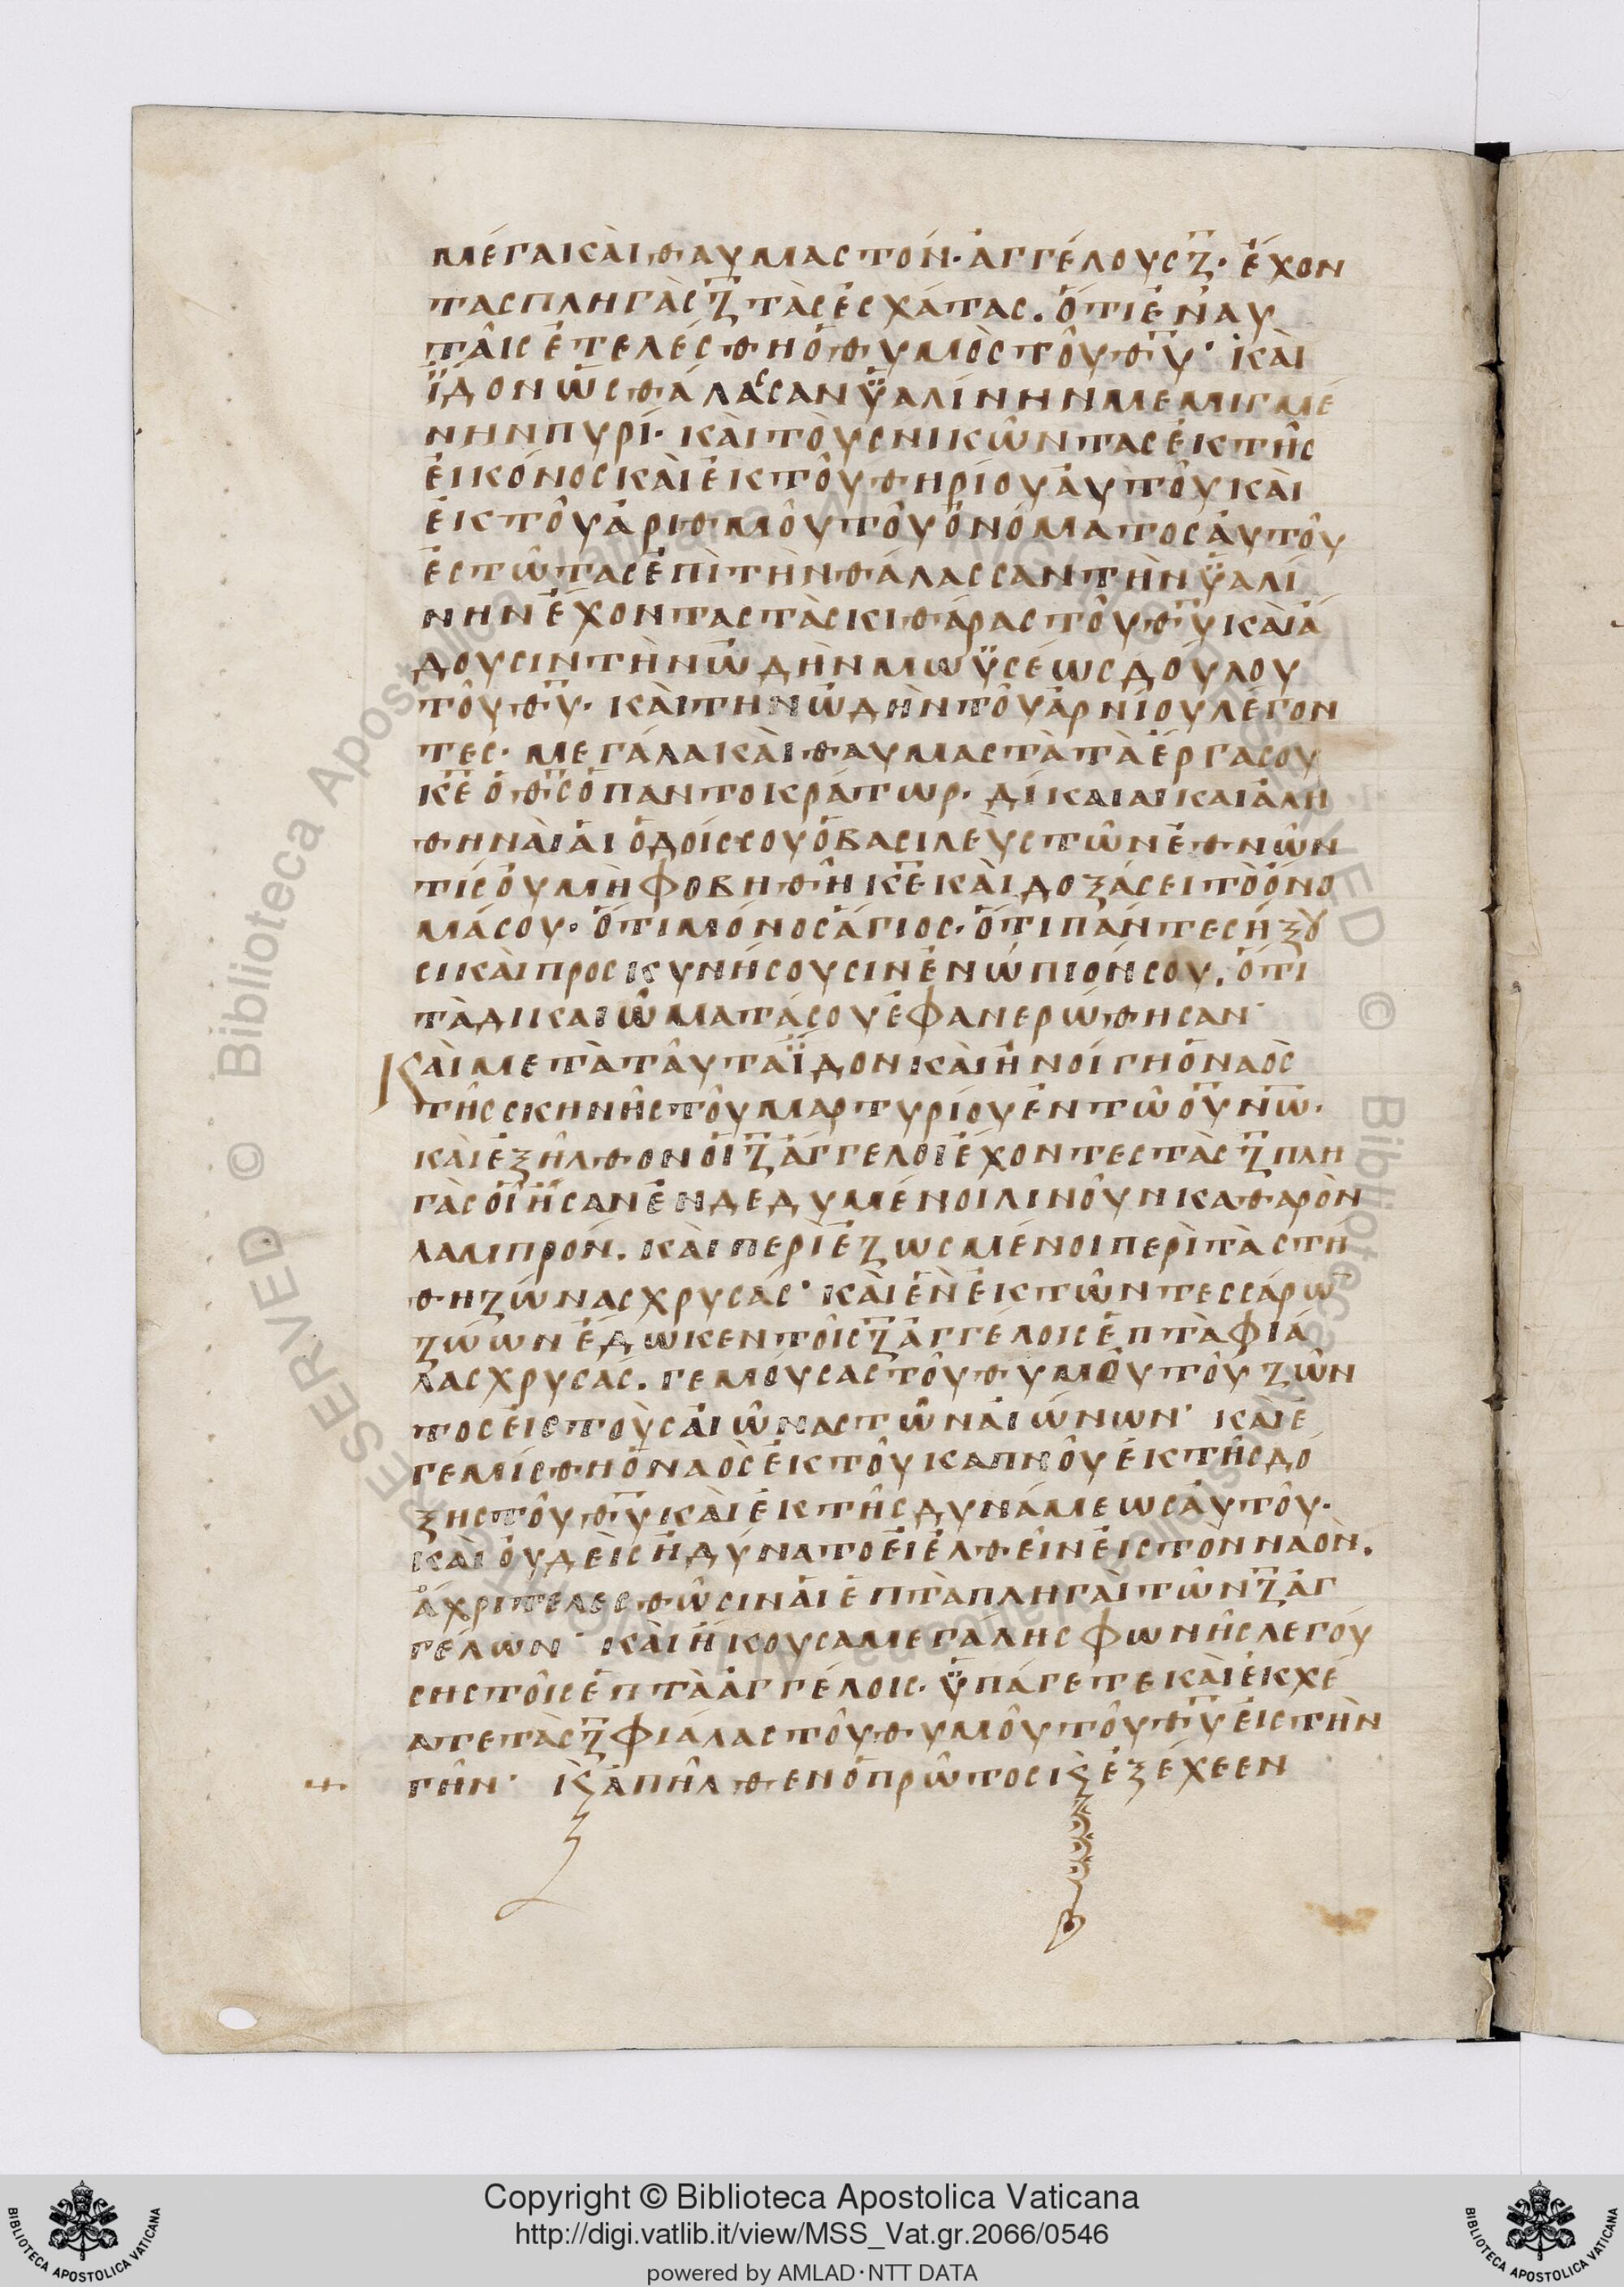 μέγα καὶ θαυμαστόν· ἀγγέλους ζ̅· ἔχον
τας πληγὰς ζ̅ τὰς ἐσχάτας. ὅτι ἐν αυ
ταῖς ἐτελέσθη ὁ θυμὸς τοῦ θ̅υ̅· καὶ
ἴδον ὡς θάλασσαν ϋαλίνην μεμιγμέ
νην πυρί· καὶ τοὺς νικῶντας ἐκ τῆς
εἰκόνος καὶ ἐκ τοῦ θηρίου ἀυτοῦ καὶ
ἐκ τοῦ ἀριθμοῦ τοῦ ὀνόματος ἀυτοῦ
ἑστῶτας ἐπὶ τὴν θάλασσαν τὴν ϋαλί
νην ἔχοντας τὰς κιθάρας τοῦ θ̅υ̅ καὶ ἄ
δουσιν τὴν ὠδὴν μωϋσέως δούλου
τοῦ θ̅υ̅· καὶ την ὠδὴν τοῦ ἀρνίου λέγον
τες· μεγάλα καὶ θαυμαστὰ τὰ ἔργα σου
κ̅ε̅ ὁ θ̅ς̅ ὁ παντοκράτωρ· δίκαιαι καὶ ἀλη
θηναὶ ἁι ὁδοίς σου ὁ βασιλεὺς τῶν ἐθνῶν
τίς ὀυ μὴ φοβηθῆ κ̅ε̅ καὶ δοξάσει τὸ ὄνο
μά σου· ὅτι μόνος ἅγιος· ὅτι πάντες ἥξȣ
σι καὶ προσκυνήσουσιν ἐνώπιόν σου. ὅτι
τὰ δικαιώματά σου ἐφανερώθησαν·
Καὶ μετὰ ταῦτα ἴδον καὶ ἠνοίγη ὁ ναὸς
τῆς σκηνῆς τοῦ μαρτυρίου ἐν τῶ ο̅υ̅ν̅ω̅·
καὶ ἐξῆλθον ὁι ζ̅ ἄγγελοι ἔχοντες τὰς ζ̅ πλη
γὰς ὁι ἦσαν ἐνδεδυμένοι λινοῦν καθαρὸν
λαμπρόν. καὶ περιεζωσμένοι περὶ τὰ στή
θη ζώνας χρυσάς· καὶ ἐν ἐκ τῶν τεσσάρω̅
ζώων ἔδωκεν τοῖς ζ̅ ἀγγέλοις ἑπτὰ φιά
λας χρυσάς. γεμούσας τοῦ θυμοῦ τοῦ ζῶν
τος εἰς τοὺς ἀιῶνας τῶν ἀιώνων· καὶ ἐ
γεμίσθη ὁ ναὸς ἐκ τοῦ καπνοῦ ἐκ τῆς δό
ξης τοῦ θ̅υ̅ καὶ ἐκ τῆς δυνάμεως ἀυτοῦ·
καὶ ὀυδεὶς ἠδύνατο εἰελθεῖν εἰς τὸν ναὸν.
ἄχρι τελεσθῶσιν ἁι ἑπτὰ πληγαὶ τῶν ζ̅ ἀγ
γέλων· καὶ ἤκουσα μεγάλης φωνῆς λεγού
σης τοῖς ἑπτὰ ἀγγέλοις· ϋπάγετε καὶ ἐκχέ
ατε τὰς ζ̅ φιάλας τοῦ θυμοῦ τοῦ θ̅υ̅ εἰς τὴν
γῆν· κϛ̀ ἀπῆλθεν ὁ πρῶτος κϛ̀ ἐξέχεεν
Copyright © Biblioteca Apostolica Vaticana
http://digi.vatlib.it/view/MSS_Vat.gr.2066/0546
powered by AMLAD·NTT DATA
BIBLIOTECA APOSTOLICA VATICANA
BIBLIOTECA APOSTOLICA VATICANA